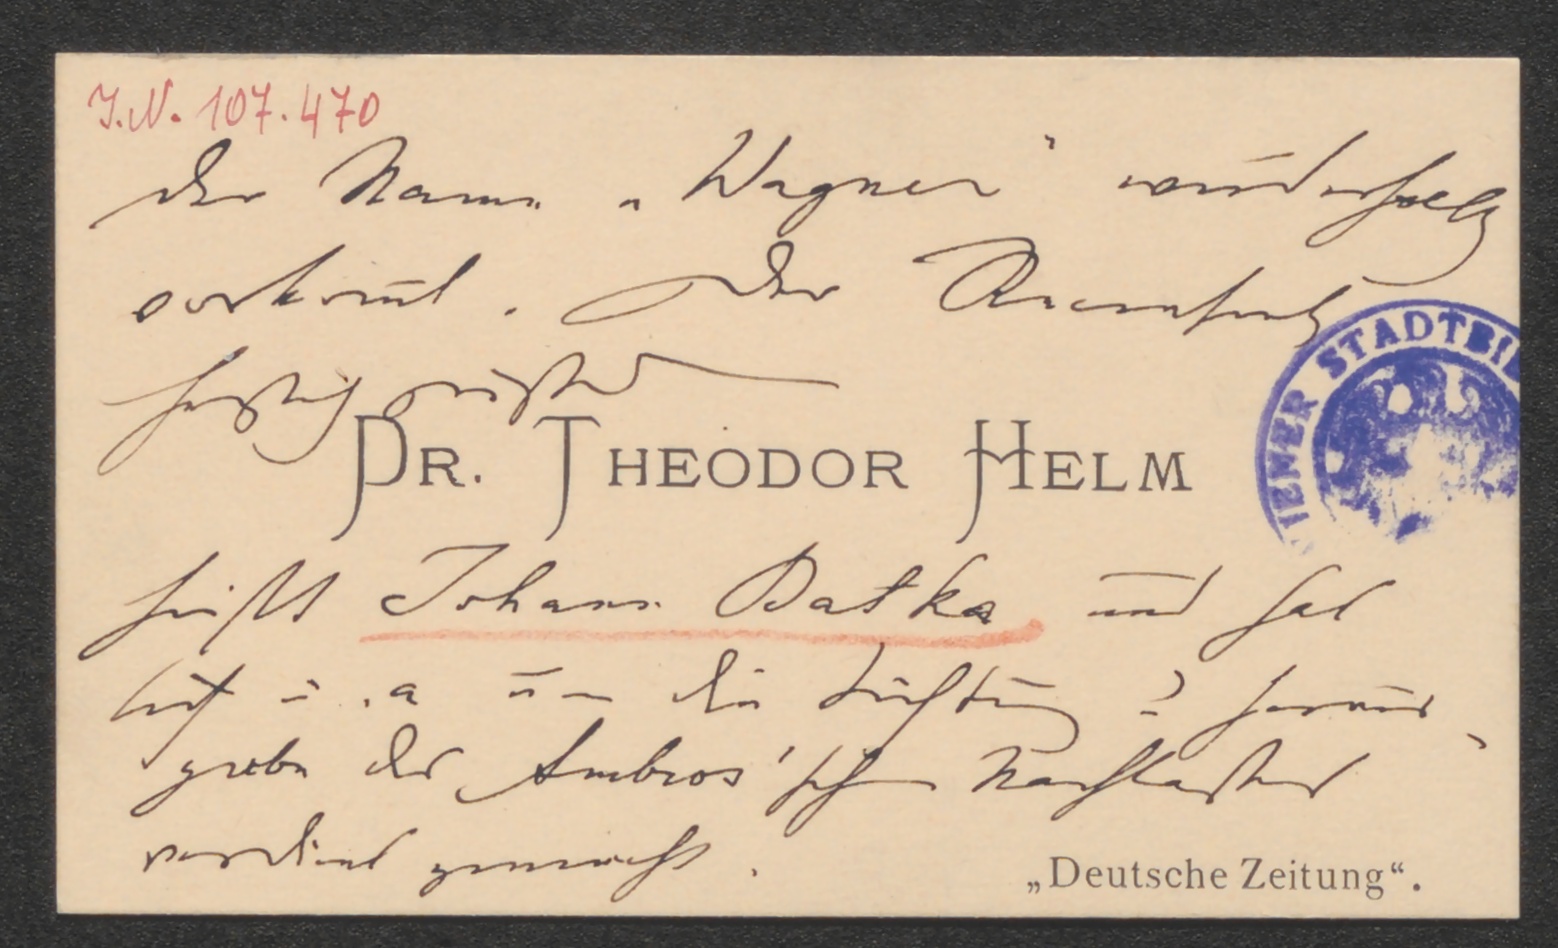 J.N. 107.470
der Name „Wagner“ wiederholt
vorkom̅t. Der Recensent
DR. THEODOR HELM
heißt Johann Batka und hat
sich u. a. um die Sichtung u. Heraus-
gabe des Ambros'schen Nachlasses
verdient gemacht.
„Deutsche Zeitung“.
WIENER STADTBI